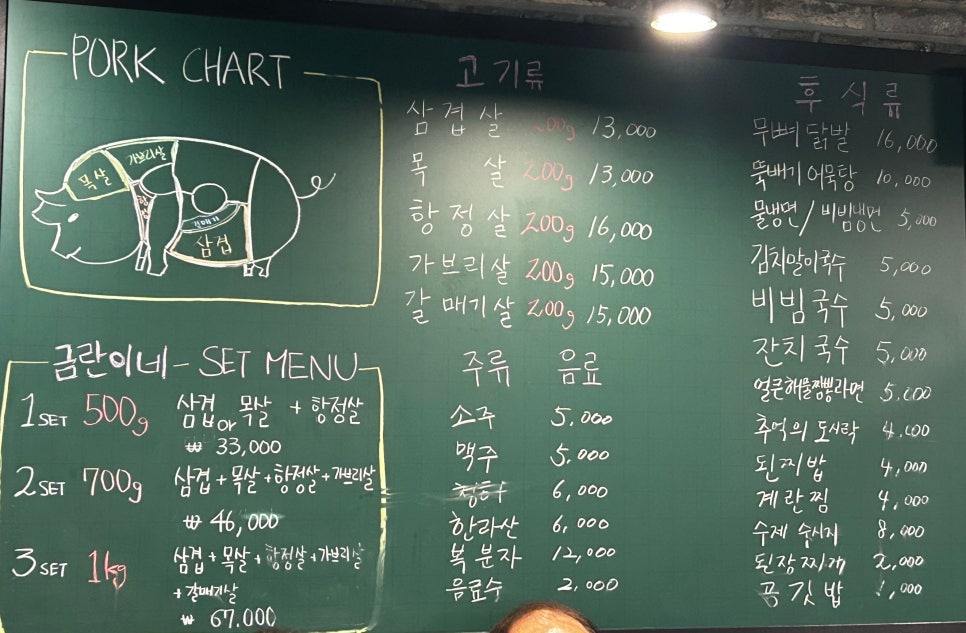 PORK CHART
목살
가브리살
항정
갈매기
삼겹
금란이네 - SET MENU
1SET 500g 삼겹 or 목살 + 항정살
₩ 33,000
2SET 700g 삼겹 + 목살 + 항정살 + 가브리살
₩ 46,000
3SET 1kg 삼겹 + 목살 + 항정살 + 가브리살
+ 갈매기살
₩ 67.000
고기류
삼겹살 200g 13,000
목살 200g 13,000
항정살 200g 16,000
가브리살 200g 15,000
갈매기살 200g 15,000
주류 음료
소주 5,000
맥주 5.000
청하 6,000
한라산 6,000
복분자 12,000
음료수 2,000
후식류
무뼈닭발 16,000
뚝배기 어묵탕 10,000
물냉면/비빔냉면 5,000
김치말이국수 5,000
비빔국수 5,000
잔치국수 5,000
얼큰해물짬뽕라면 5,000
추억의 도시락 4,000
된찌밥 4,000
계란찜 4,000
수제 소시지 8,000
된장찌개 2,000
공깃밥 1,000